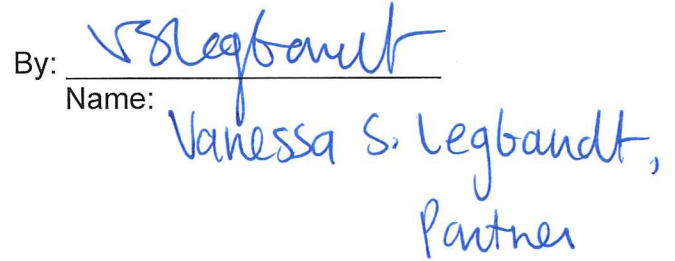 By: VSLegbandt
Name:
Vanessa S. Legbandt,
Partner